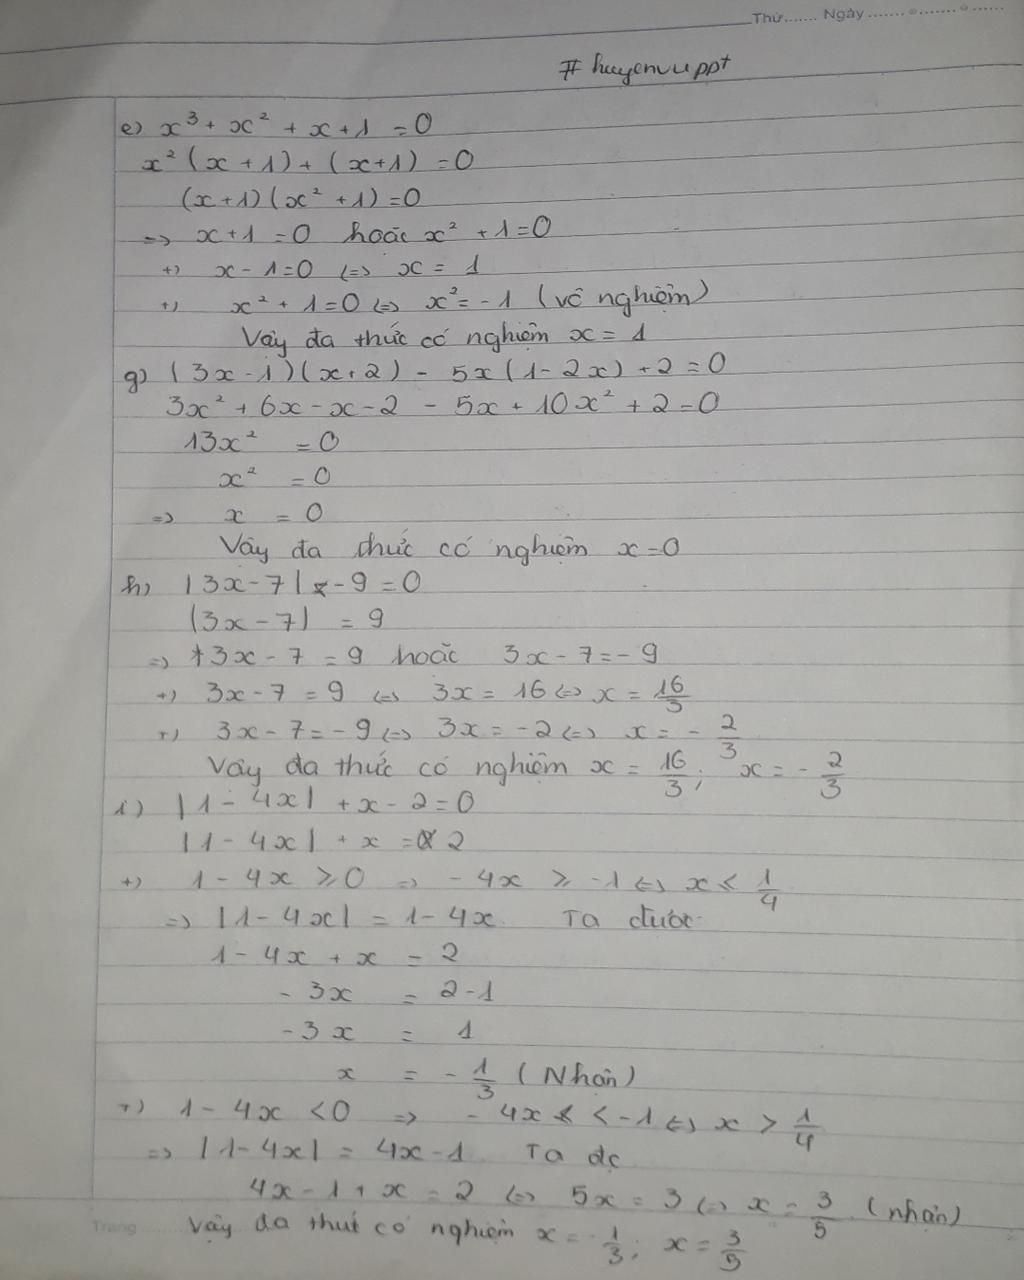 Thứ....... Ngày.......o.......o......
# huyenvuppt
e) x³ + x² + x + 1 = 0
x² (x + 1) + (x + 1) = 0
(x + 1) (x² + 1) = 0
=> x + 1 = 0 hoặc x² + 1 = 0
+) x - 1 = 0 <=> x = 1
+) x² + 1 = 0 <=> x² = - 1 (vô nghiệm)
Vậy đa thức có nghiệm x = 1
g) (3x - 1) (x + 2) - 5x (1 - 2x) + 2 = 0
3x² + 6x - x - 2 - 5x + 10x² + 2 = 0
13x² = 0
x² = 0
=> x = 0
Vậy đa thức có nghiệm x = 0
h) |3x - 7| - 9 = 0
|3x - 7| = 9
=> 3x - 7 = 9 hoặc 3x - 7 = - 9
+) 3x - 7 = 9 <=> 3x = 16 <=> x = 16/3
+) 3x - 7 = - 9 <=> 3x = - 2 <=> x = - 2/3
Vậy đa thức có nghiệm x = 16/3 ; x = - 2/3
i) |1 - 4x| + x - 2 = 0
|1 - 4x| + x = 2
+) 1 - 4x ≥ 0 => - 4x ≥ - 1 <=> x < 1/4
=> |1 - 4x| = 1 - 4x. Ta được
1 - 4x + x = 2
- 3x = 2 - 1
- 3x = 1
x = - 1/3 (Nhận)
+) 1 - 4x < 0 => - 4x < - 1 <=> x > 1/4
=> |1 - 4x| = 4x - 1. Ta đc
4x - 1 + x = 2 <=> 5x = 3 <=> x = 3/5 (nhận)
Trang ....... Vậy đa thức có nghiệm x = - 1/3 ; x = 3/5